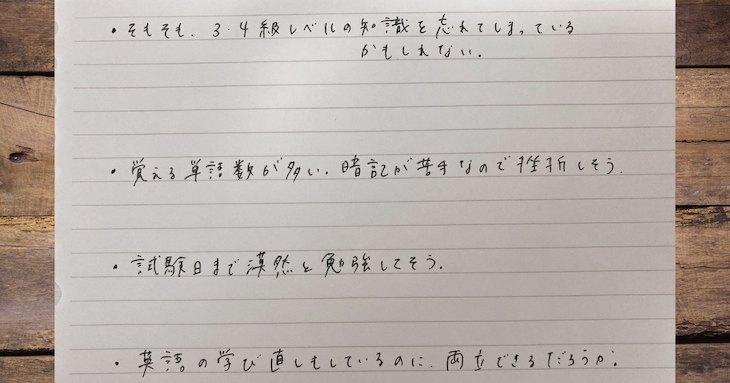 ・そもそも、3・4級レベルの知識を忘れてしまっている
かもしれない。
・覚える単語数が多い。暗記が苦手なので挫折しそう。
・試験日まで漠然と勉強してそう。
・英語の学び直しもしているのに、両立できるだろうか。